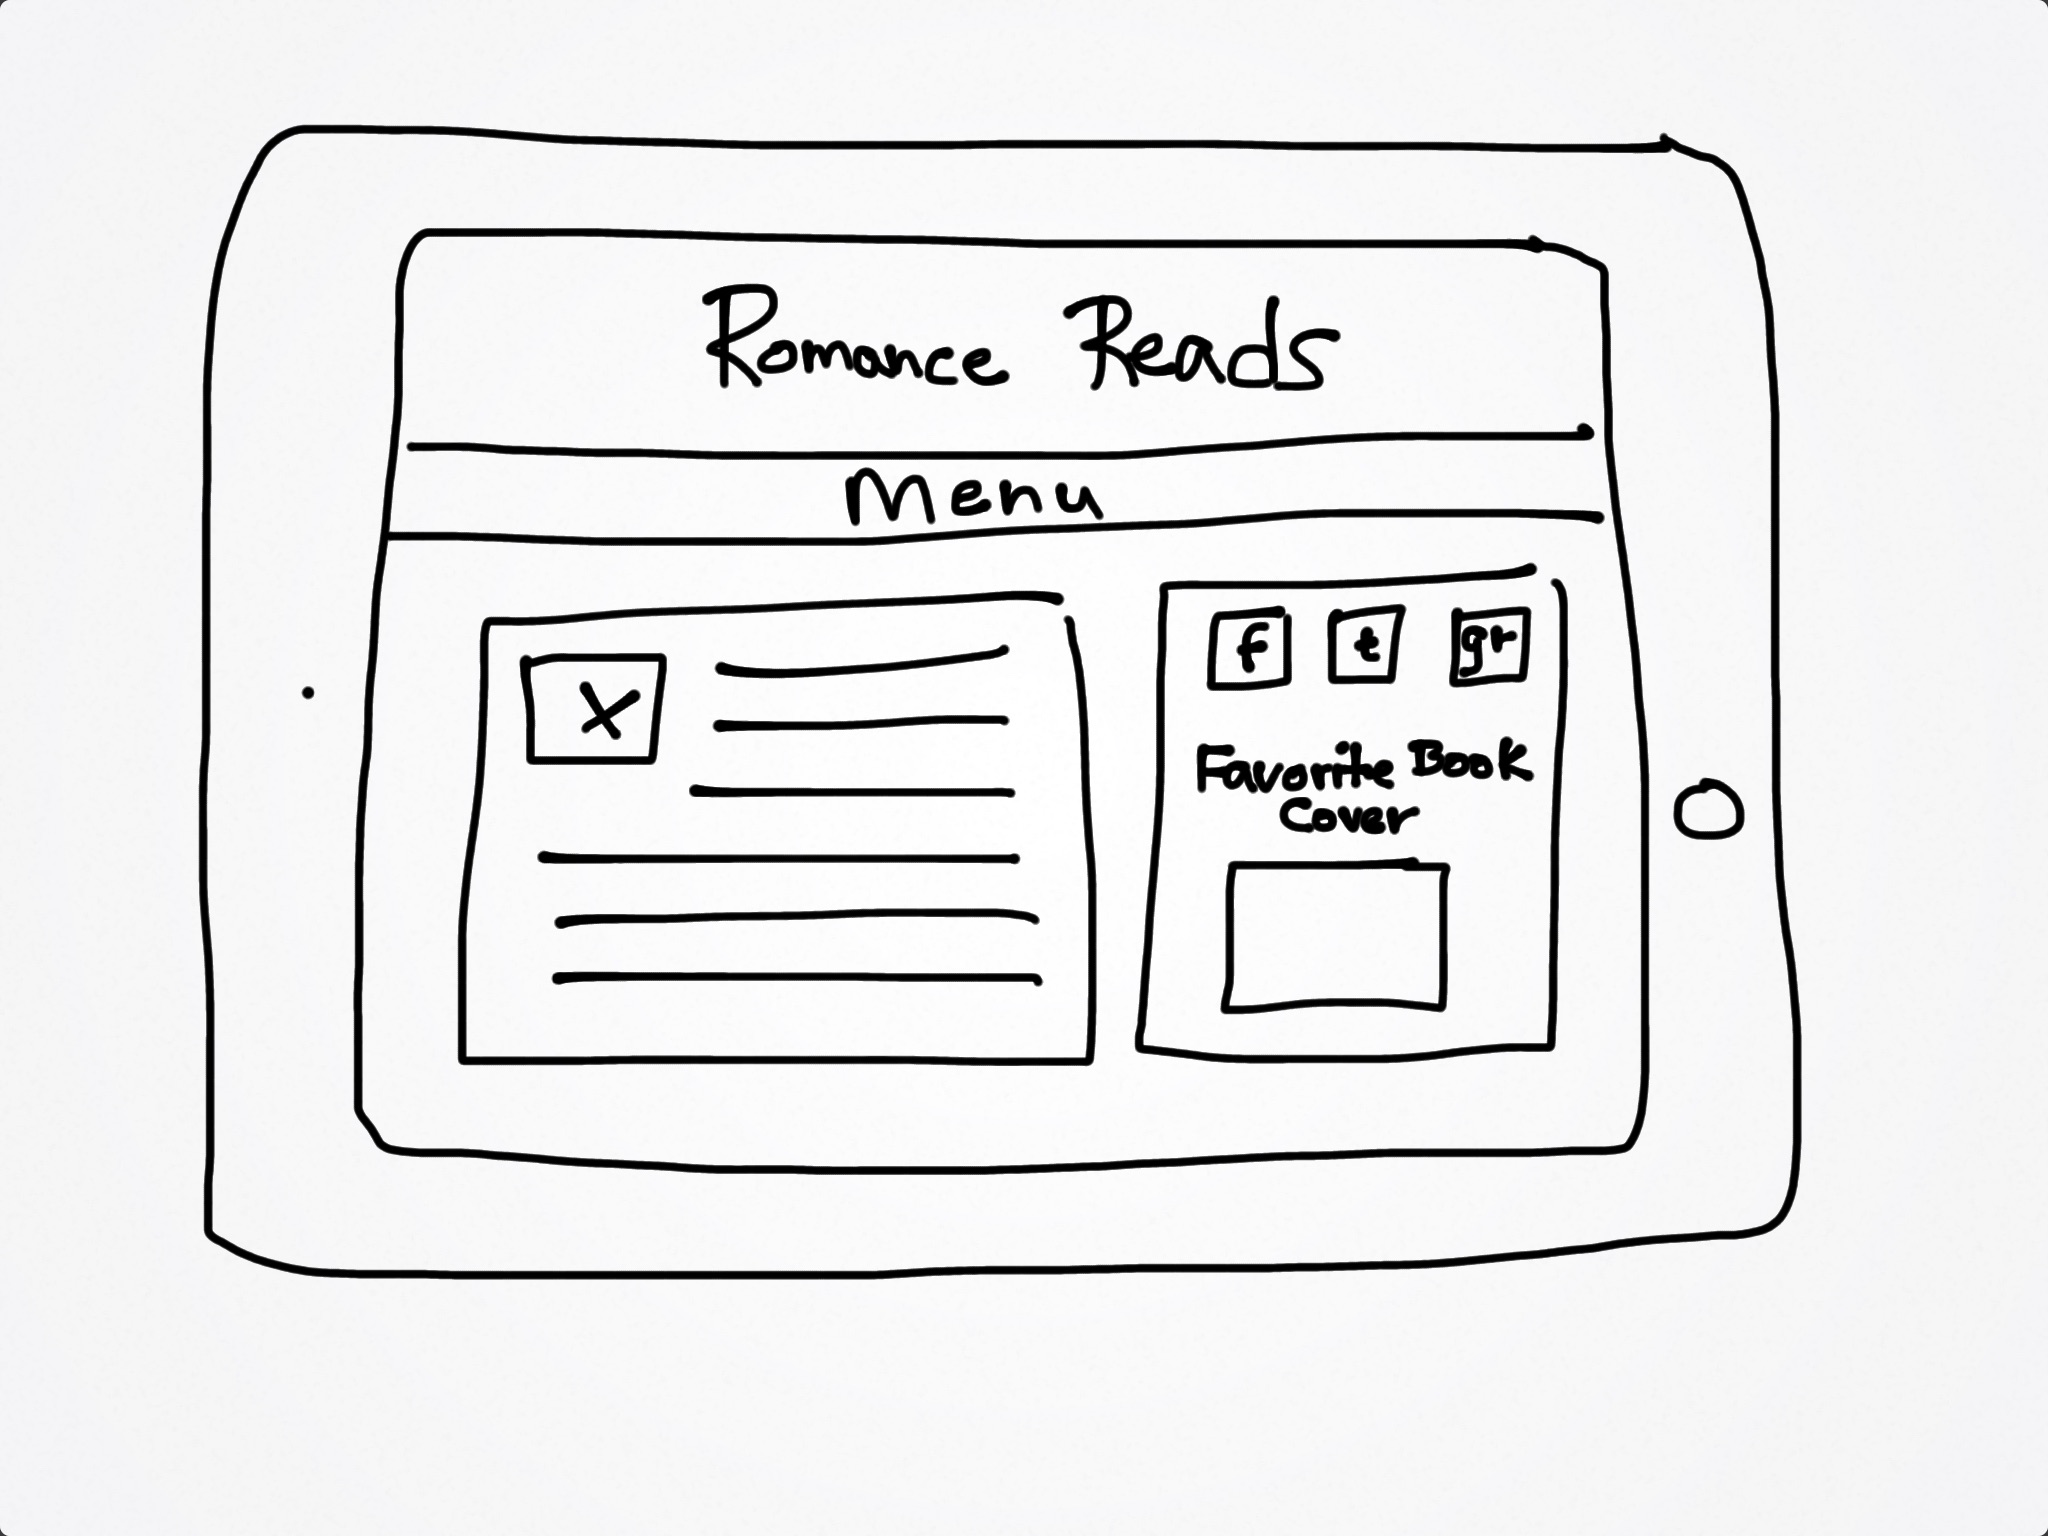 Romance Reads
Menu
f t gr
Favorite Book
Cover